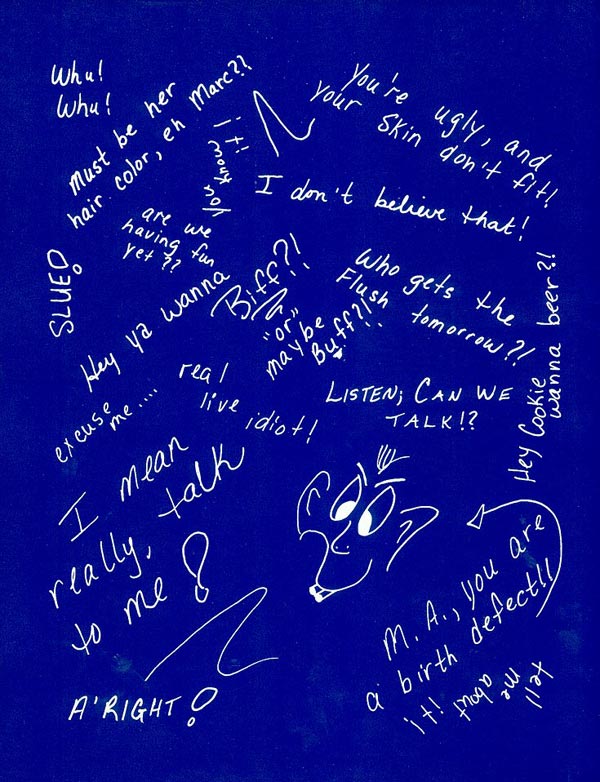 Whu!
Whu!
Must be her
hair color, eh Marc?!
you know
it!
You're ugly, and
your skin don't fit!
I don't believe that!
are we
having fun
yet??
SLUED
Hey ya wanna
Biff?!
"or"
maybe
Buff?!
Who gets the
Flush tomorrow?!
Hey Cookie
wanna beer?!
excuse
me....
real
live
idiot!
LISTEN; CAN WE
TALK!?
I mean
really, talk
to me?
M.A., you are
a birth defect!!
tell
me
about
it!
A'RIGHT!